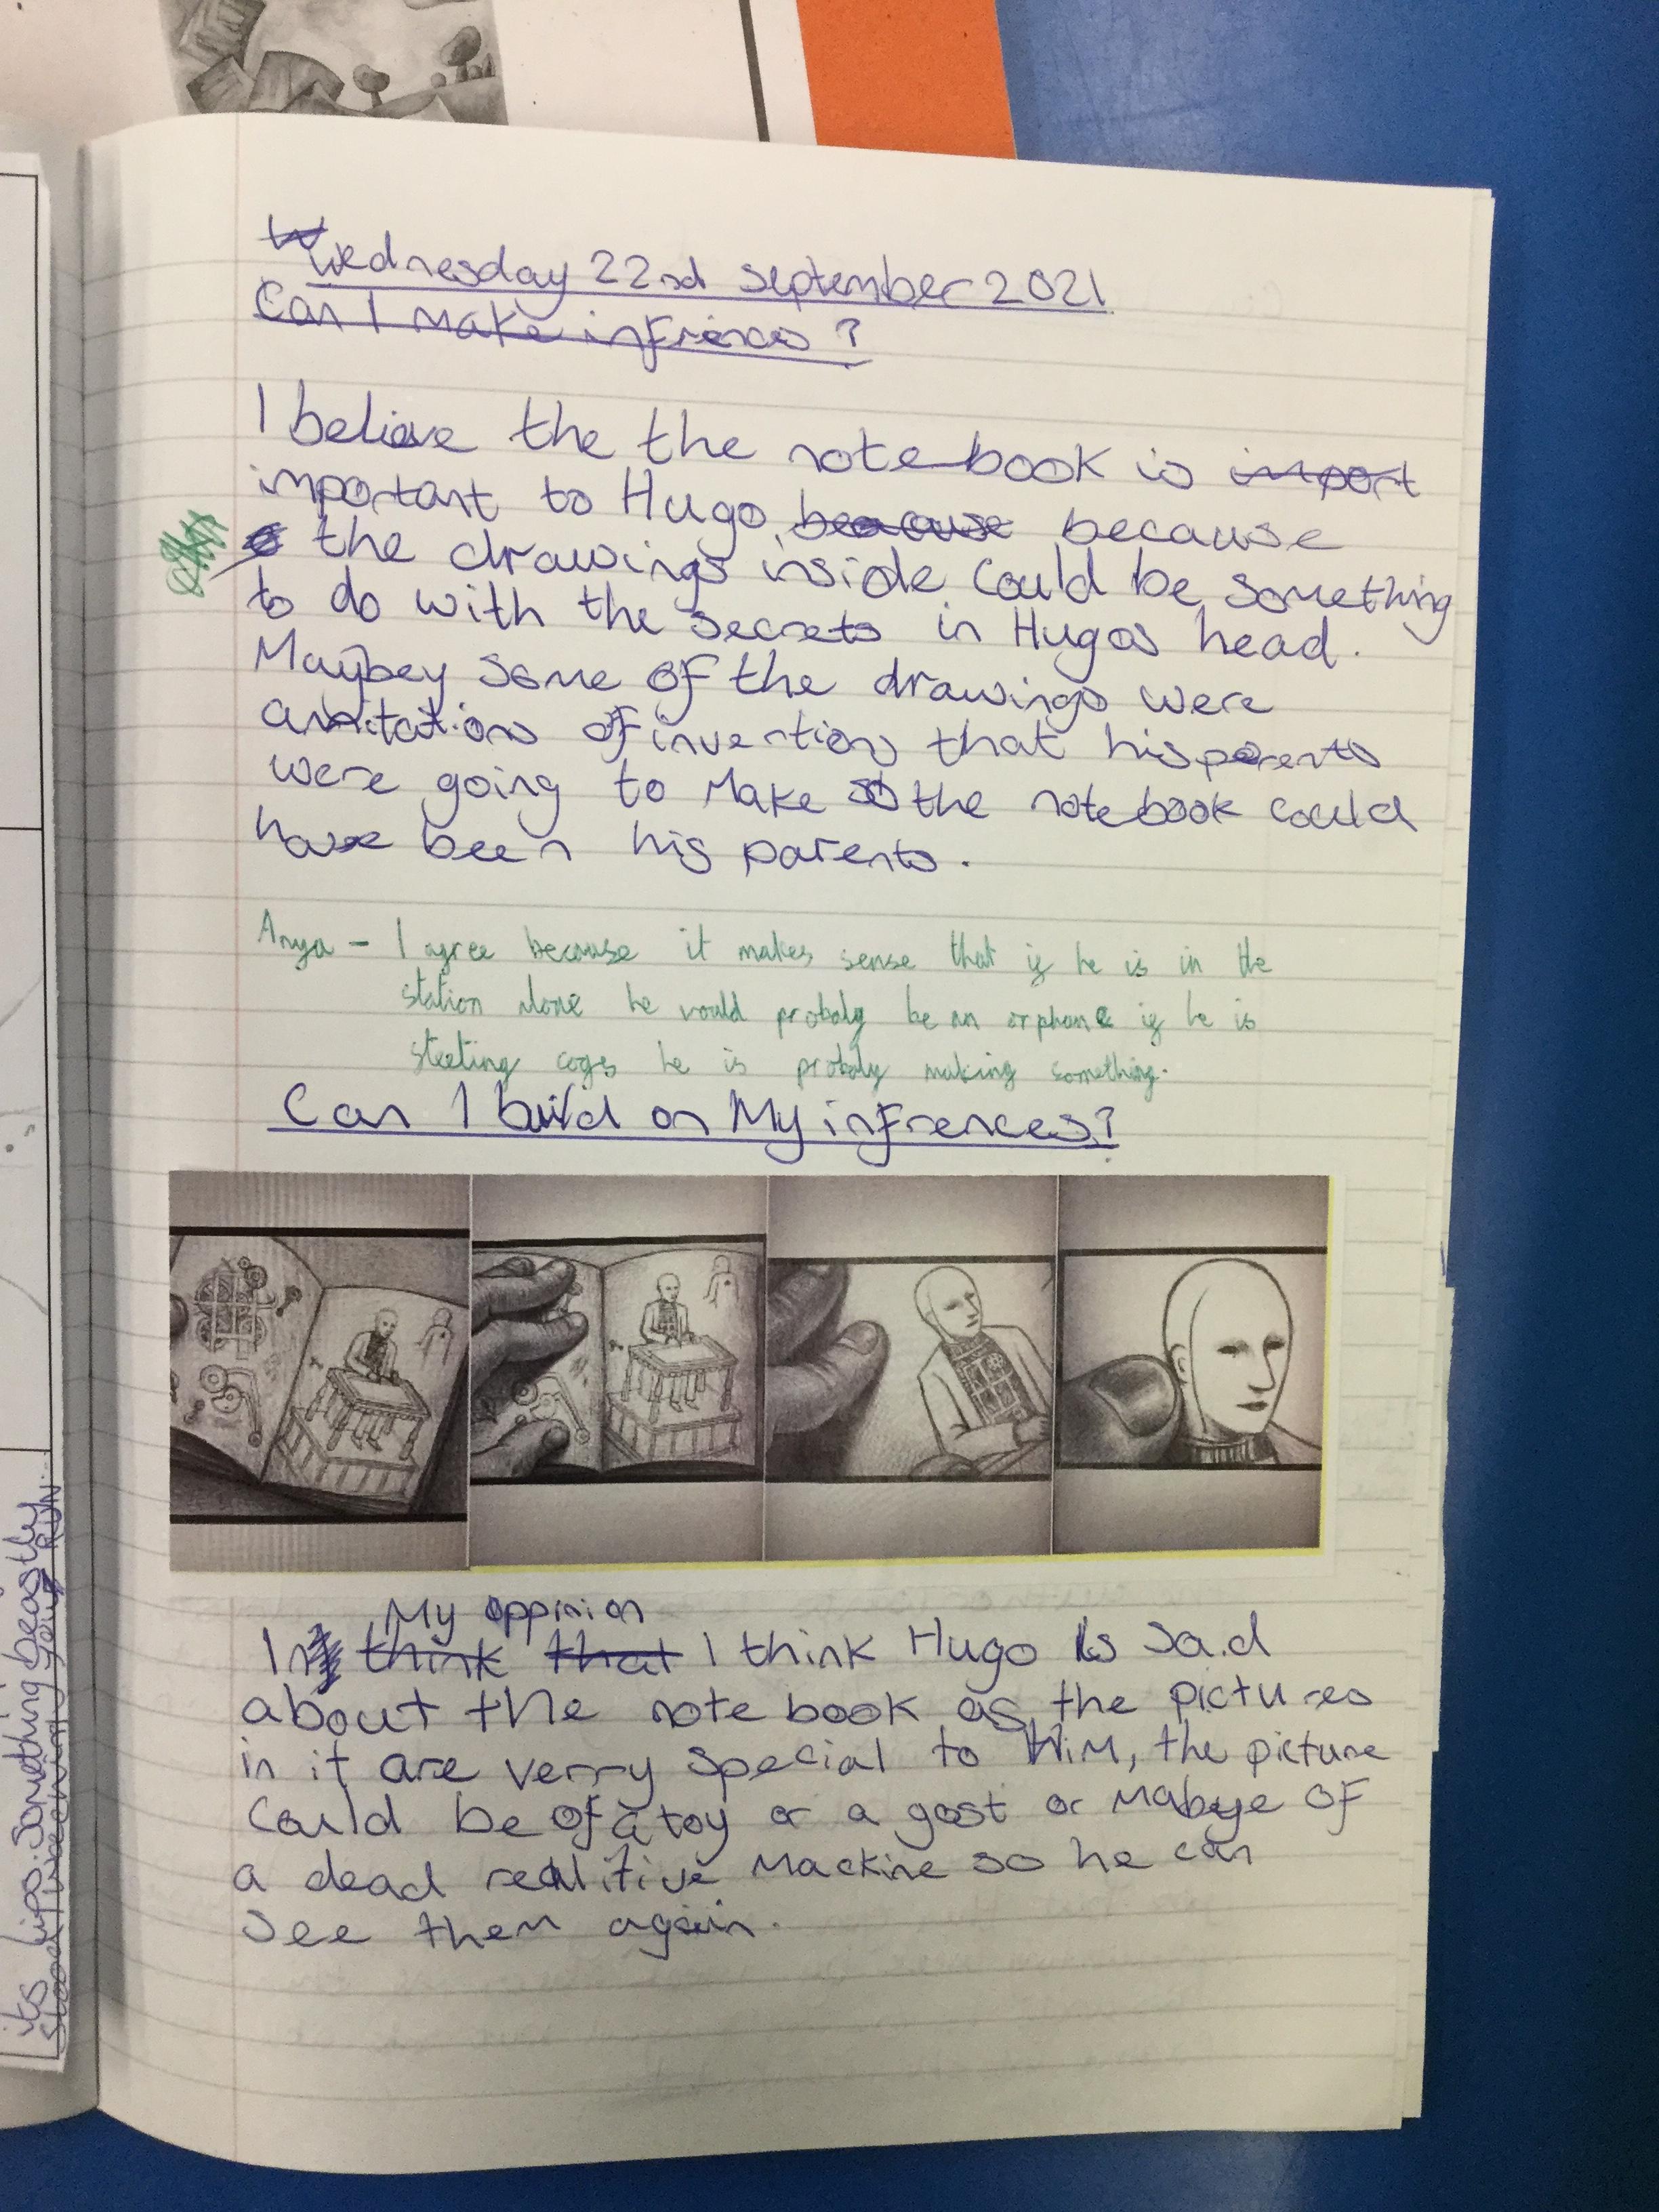 Wednesday 22nd september 2021
Can I make infrences?
I believe the the notebook is import
important to Hugo, beacause because
the drawings inside could be something
to do with the secrets in Hugos head.
Maybey some of the drawings were
of invention that his parents
were going to make so the notebook could
have been his parents.
Anya - I agree because it makes sense that if he is in the
station alone he would probaly be an orphane if he is
steeling cogs he is probaly making something.
Can I build on My infrences?
My oppinion
In think that I think Hugo is sad
about the note book as the pictures
in it are verry special to him, the picture
could be of a toy or a gost or mabye of
a dead realitive machine so he can
see them again.
its lips. Something beastly...
RUN